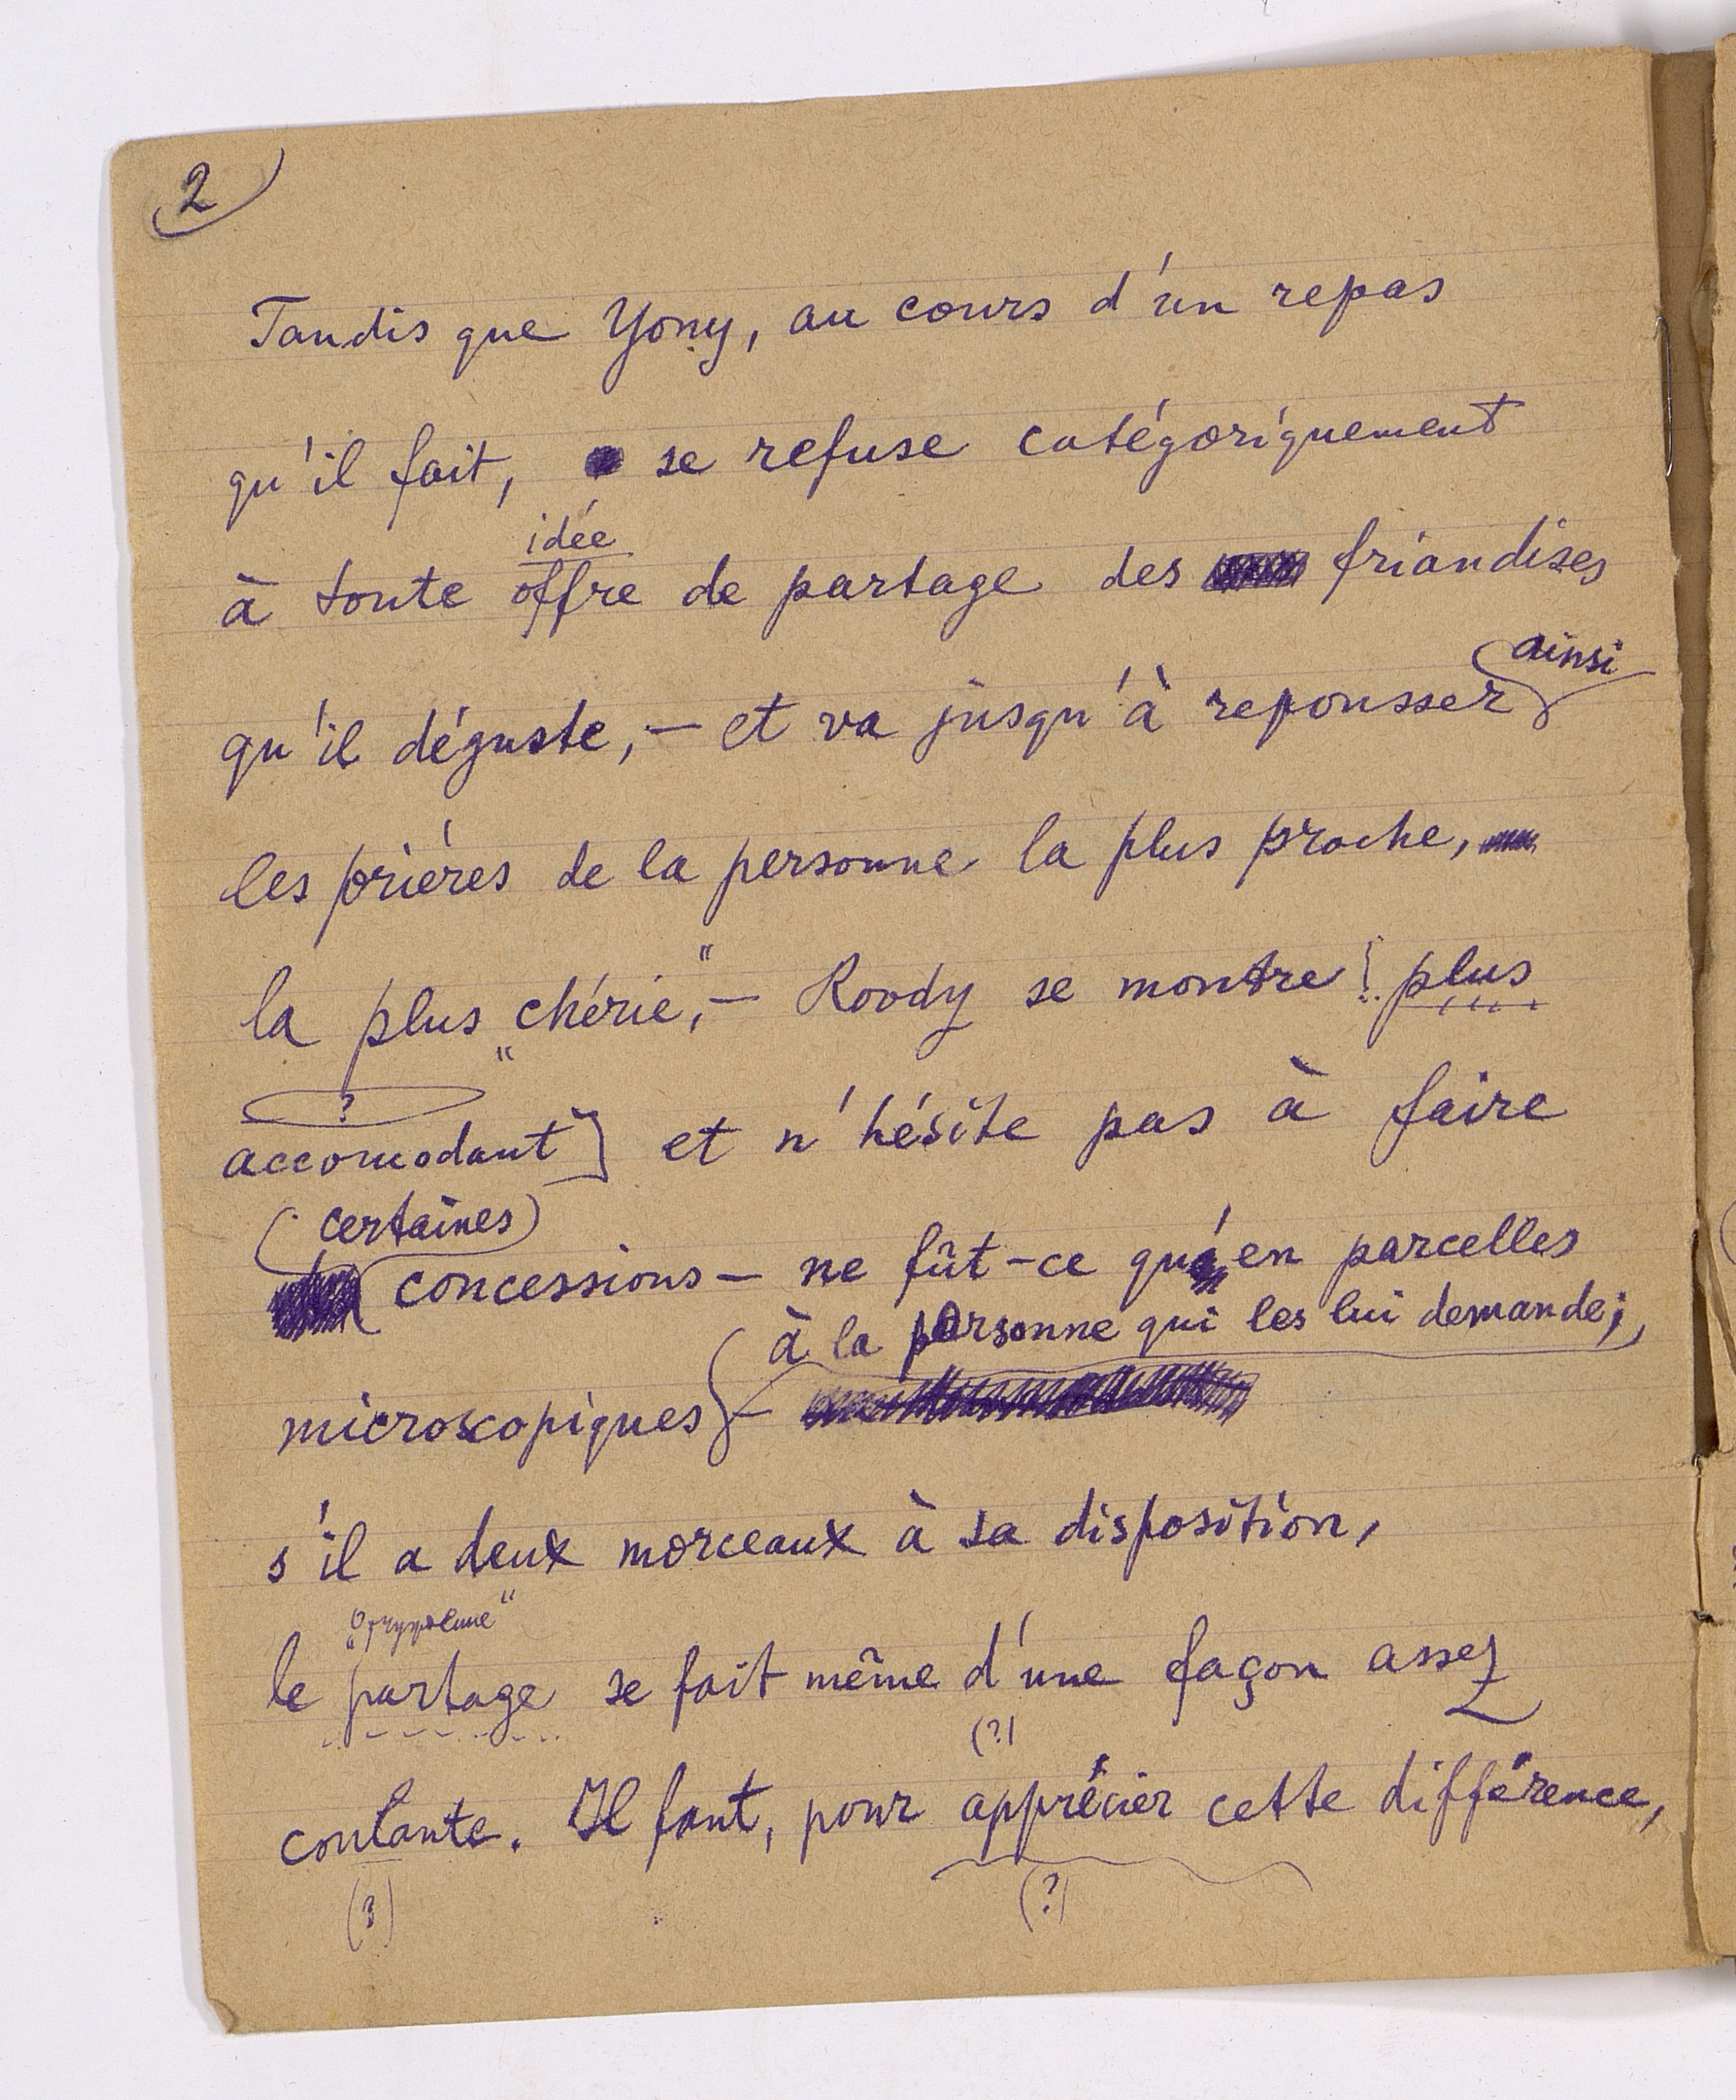 2
Tandis que Yony, au cours d'un repas
qu'il fait, se refuse catégoriquement
idée
à toute offre de partage des friandises
ainsi
qu'il déguste, — et va jusqu'à repousser
les prières de la personne la plus proche,
la plus "chérie", — Roody se montre plus
?
accomodant] et n'hésite pas à faire
(certaines)
concessions — ne fût-ce qu'en parcelles
à la personne qui les lui demande;
microscopiques —
s'il a deux morceaux à sa disposition,
le partage se fait même d'une façon assez
(?)
coulante. Il faut, pour apprécier cette différence,
(?) (?)